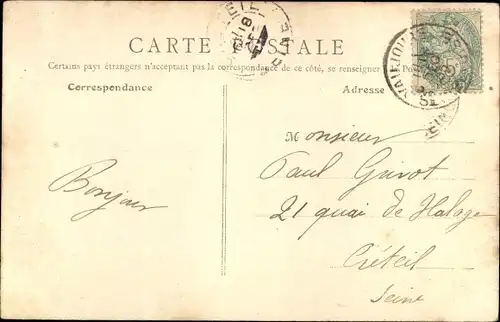 CARTE POSTALE
Certains pays étrangers n'acceptant pas la correspondance de ce côté, se renseigner à la Poste
Correspondance
Adresse
Bonjour
Monsieur
Paul Guvot
21 quai de Halage
Créteil
Seine